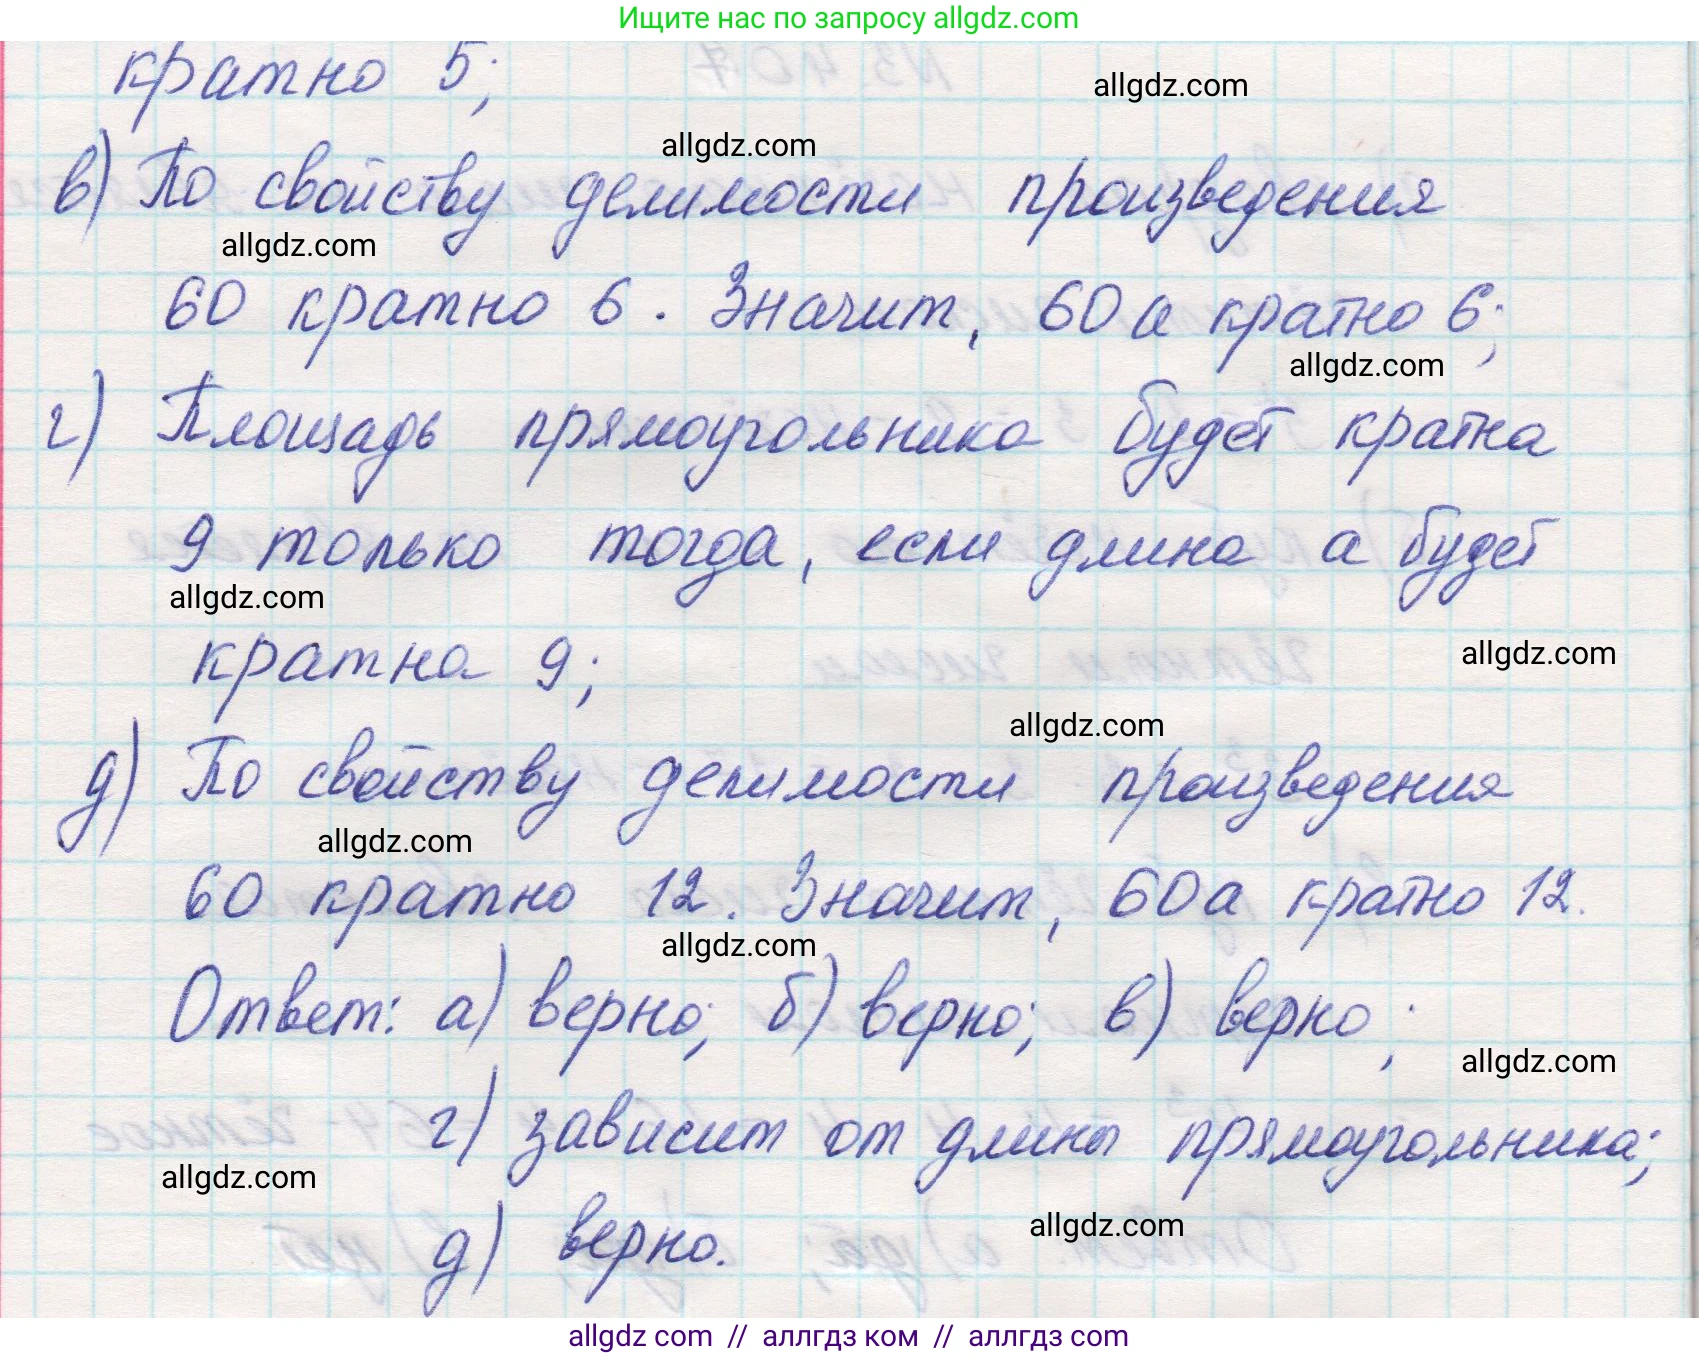 Ищите нас по запросу allgdz.com
кратно 5;
allgdz.com
allgdz.com
в) По свойству делимости произведения
allgdz.com
60 кратно 6. Значит, 60а кратно 6;
allgdz.com
г) Площадь прямоугольника будет кратна
9 только тогда, если длина а будет
allgdz.com
кратна 9;
allgdz.com
allgdz.com
д) По свойству делимости произведения
allgdz.com
60 кратно 12. Значит, 60а кратно 12.
allgdz.com
Ответ: а) верно; б) верно; в) верно;
allgdz.com
г) зависит от длины прямоугольника;
allgdz.com
allgdz.com
д) верно.
allgdz com // аллгдз ком // аллгдз com